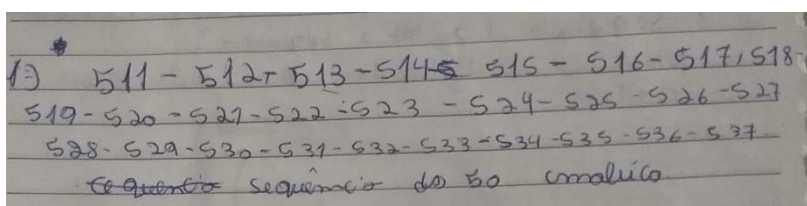 1=) 511 - 512 - 513 - 514 - 515 - 516 - 517, 518 -
519 - 520 - 521 - 522 - 523 - 524 - 525 - 526 - 527
528 - 529 - 530 - 531 - 532 - 533 - 534 - 535 - 536 - 537.
sequência do 50